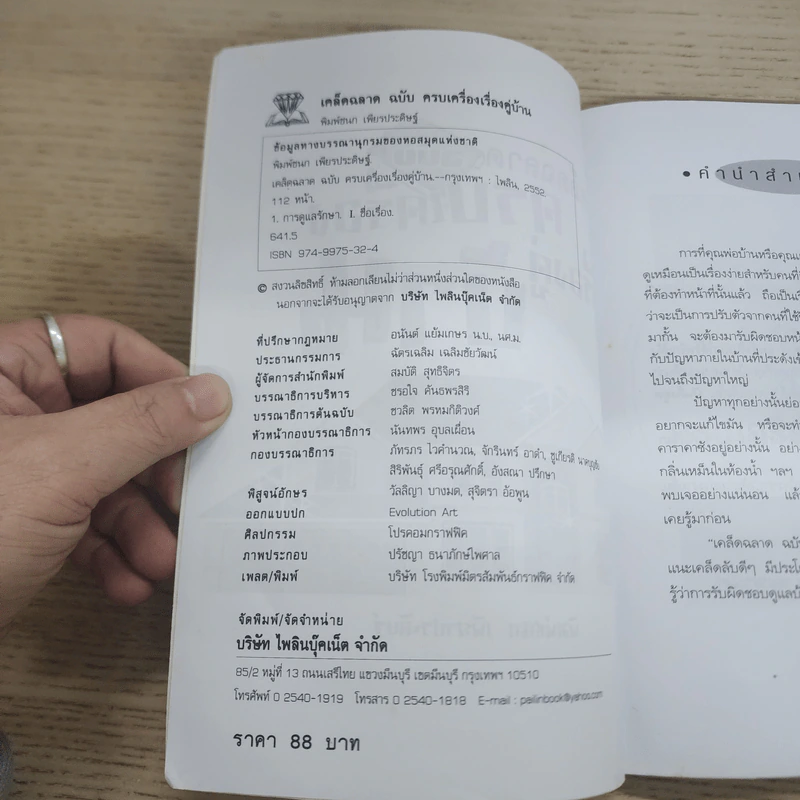 เคล็ดฉลาด ฉบับ ครบเครื่องเรื่องคู่บ้าน
พิมพ์ชนก เพียรประดิษฐ์
ข้อมูลทางบรรณานุกรมของหอสมุดแห่งชาติ
พิมพ์ชนก เพียรประดิษฐ์
เคล็ดฉลาด ฉบับ ครบเครื่องเรื่องคู่บ้าน.--กรุงเทพฯ : ไพลิน, 2552.
112 หน้า.
1. การดูแลรักษา. I. ชื่อเรื่อง.
641.5
ISBN 974-9975-32-4
© สงวนลิขสิทธิ์ ห้ามลอกเลียนไม่ว่าส่วนหนึ่งส่วนใดของหนังสือ
นอกจากจะได้รับอนุญาตจาก บริษัท ไพลินบุ๊คเน็ต จำกัด
ที่ปรึกษากฎหมาย อนันต์ แย้มเกษร น.บ., นศ.ม.
ประธานกรรมการ ฉัตรเฉลิม เฉลิมชัยวัฒน์
ผู้จัดการสำนักพิมพ์ สมบัติ สุทธิจิตร
บรรณาธิการบริหาร ชรอใจ คันธพรสิรี
บรรณาธิการต้นฉบับ ชวลิต พรหมกิติวงศ์
หัวหน้ากองบรรณาธิการ นันทพร อุบลเผื่อน
กองบรรณาธิการ ภัทรภร ไวคำนวณ, จักรินทร์ อาดำ, ชูเกียรติ
สิริพันธุ์ ศรีอรุณศักดิ์, อังสณา ปรึกษา
พิสูจน์อักษร วัลลิญา บางมด, สุจิตรา อ้อพูน
ออกแบบปก Evolution Art
ศิลปกรรม โปรคอมกราฟฟิค
ภาพประกอบ ปรัชญา ธนาภักษ์ไพศาล
เพลต/พิมพ์ บริษัท โรงพิมพ์มิตรสัมพันธ์กราฟฟิค จำกัด
จัดพิมพ์/จัดจำหน่าย
บริษัท ไพลินบุ๊คเน็ต จำกัด
85/2 หมู่ที่ 13 ถนนเสรีไทย แขวงมีนบุรี เขตมีนบุรี กรุงเทพฯ 10510
โทรศัพท์ 0 2540-1919 โทรสาร 0 2540-1818 E-mail : pailinbook@yahoo.com
ราคา 88 บาท
• คำนำสำ
การที่คุณพ่อบ้านหรือคุณ
ดูเหมือนเป็นเรื่องง่ายสำหรับคนที่
ที่ต้องทำหน้าที่นั้นแล้ว ถือเป็น
ว่าจะเป็นการปรับตัวจากคนที่ใช้
มากั้น จะต้องมารับผิดชอบ
กับปัญหาภายในบ้านที่ประดัง
ไปจนถึงปัญหาใหญ่
ปัญหาทุกอย่างนั้นย่อ
อยากจะแก้ไขมัน หรือจะ
คาราคาซังอยู่อย่างนั้น อย่าง
กลิ่นเหม็นในห้องน้ำ ฯลฯ
พบเจออย่างแน่นอน แล้
เคยรู้มาก่อน
"เคล็ดฉลาด ฉบั
แนะเคล็ดลับดีๆ มีประโ
รู้ว่าการรับผิดชอบดูแล